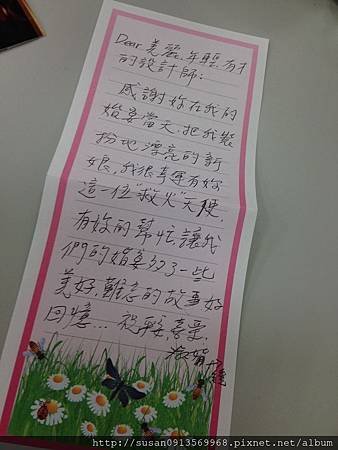 Dear 美麗.年輕.有才
的設計師:
感謝妳在我的
婚宴當天.把我裝
扮地漂亮的新
娘,我很幸運有妳
這一位"救火"天使.
有妳的幫忙,讓我
們的婚宴多了一些
美好.難忘的故事好
回憶... 祝 喜愛.
http://susan0913569968.pixnet.net/album